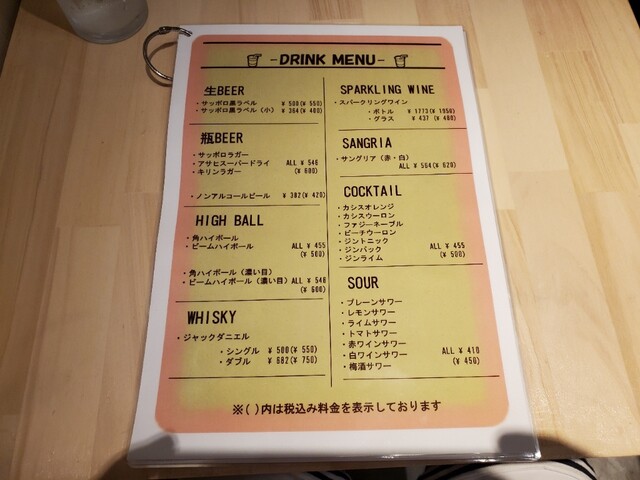 -DRINK MENU-
生BEER
・サッポロ黒ラベル ¥ 500(¥ 550)
・サッポロ黒ラベル（小） ¥ 364(¥ 400)
瓶BEER
・サッポロラガー
・アサヒスーパードライ ALL ¥ 546
・キリンラガー (¥ 600)
・ノンアルコールビール ¥ 382(¥ 420)
HIGH BALL
・角ハイボール
・ビームハイボール ALL ¥ 455
(¥ 500)
・角ハイボール（濃い目）
・ビームハイボール（濃い目）ALL ¥ 546
(¥ 600)
WHISKY
・ジャックダニエル
・シングル ¥ 500(¥ 550)
・ダブル ¥ 682(¥ 750)
SPARKLING WINE
・スパークリングワイン
・ボトル ¥ 1773(¥ 1950)
・グラス ¥ 437 (¥ 480)
SANGRIA
・サングリア（赤・白）
ALL ¥ 564(¥ 620)
COCKTAIL
・カシスオレンジ
・カシスウーロン
・ファジーネーブル
・ピーチウーロン
・ジントニック
・ジンバック ALL ¥ 455
・ジンライム (¥ 500)
SOUR
・プレーンサワー
・レモンサワー
・ライムサワー
・トマトサワー
・赤ワインサワー
・白ワインサワー ALL ¥ 410
・梅酒サワー (¥ 450)
※( )内は税込み料金を表示しております